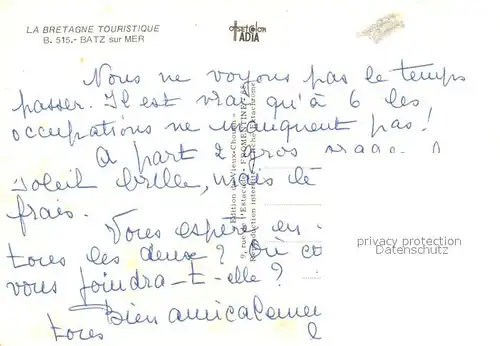 LA BRETAGNE TOURISTIQUE
B. 515.- BATZ sur MER
offset color
IADIA
Nous ne voyons pas le temps
passer. Il est vrai qu'à 6 les
occupations ne manquent pas !
A part 2 gros
soleil brille, mais le
frais.
Vous espère en
tous les deux ? Où et
vous joindra-t-elle ?
Bien amicalement
tous
Edition du "Vieux-Chouan"
9, rue de l'Estacade - FROMENTINE - 85
Reproduction interdite
privacy protection
Datenschutz